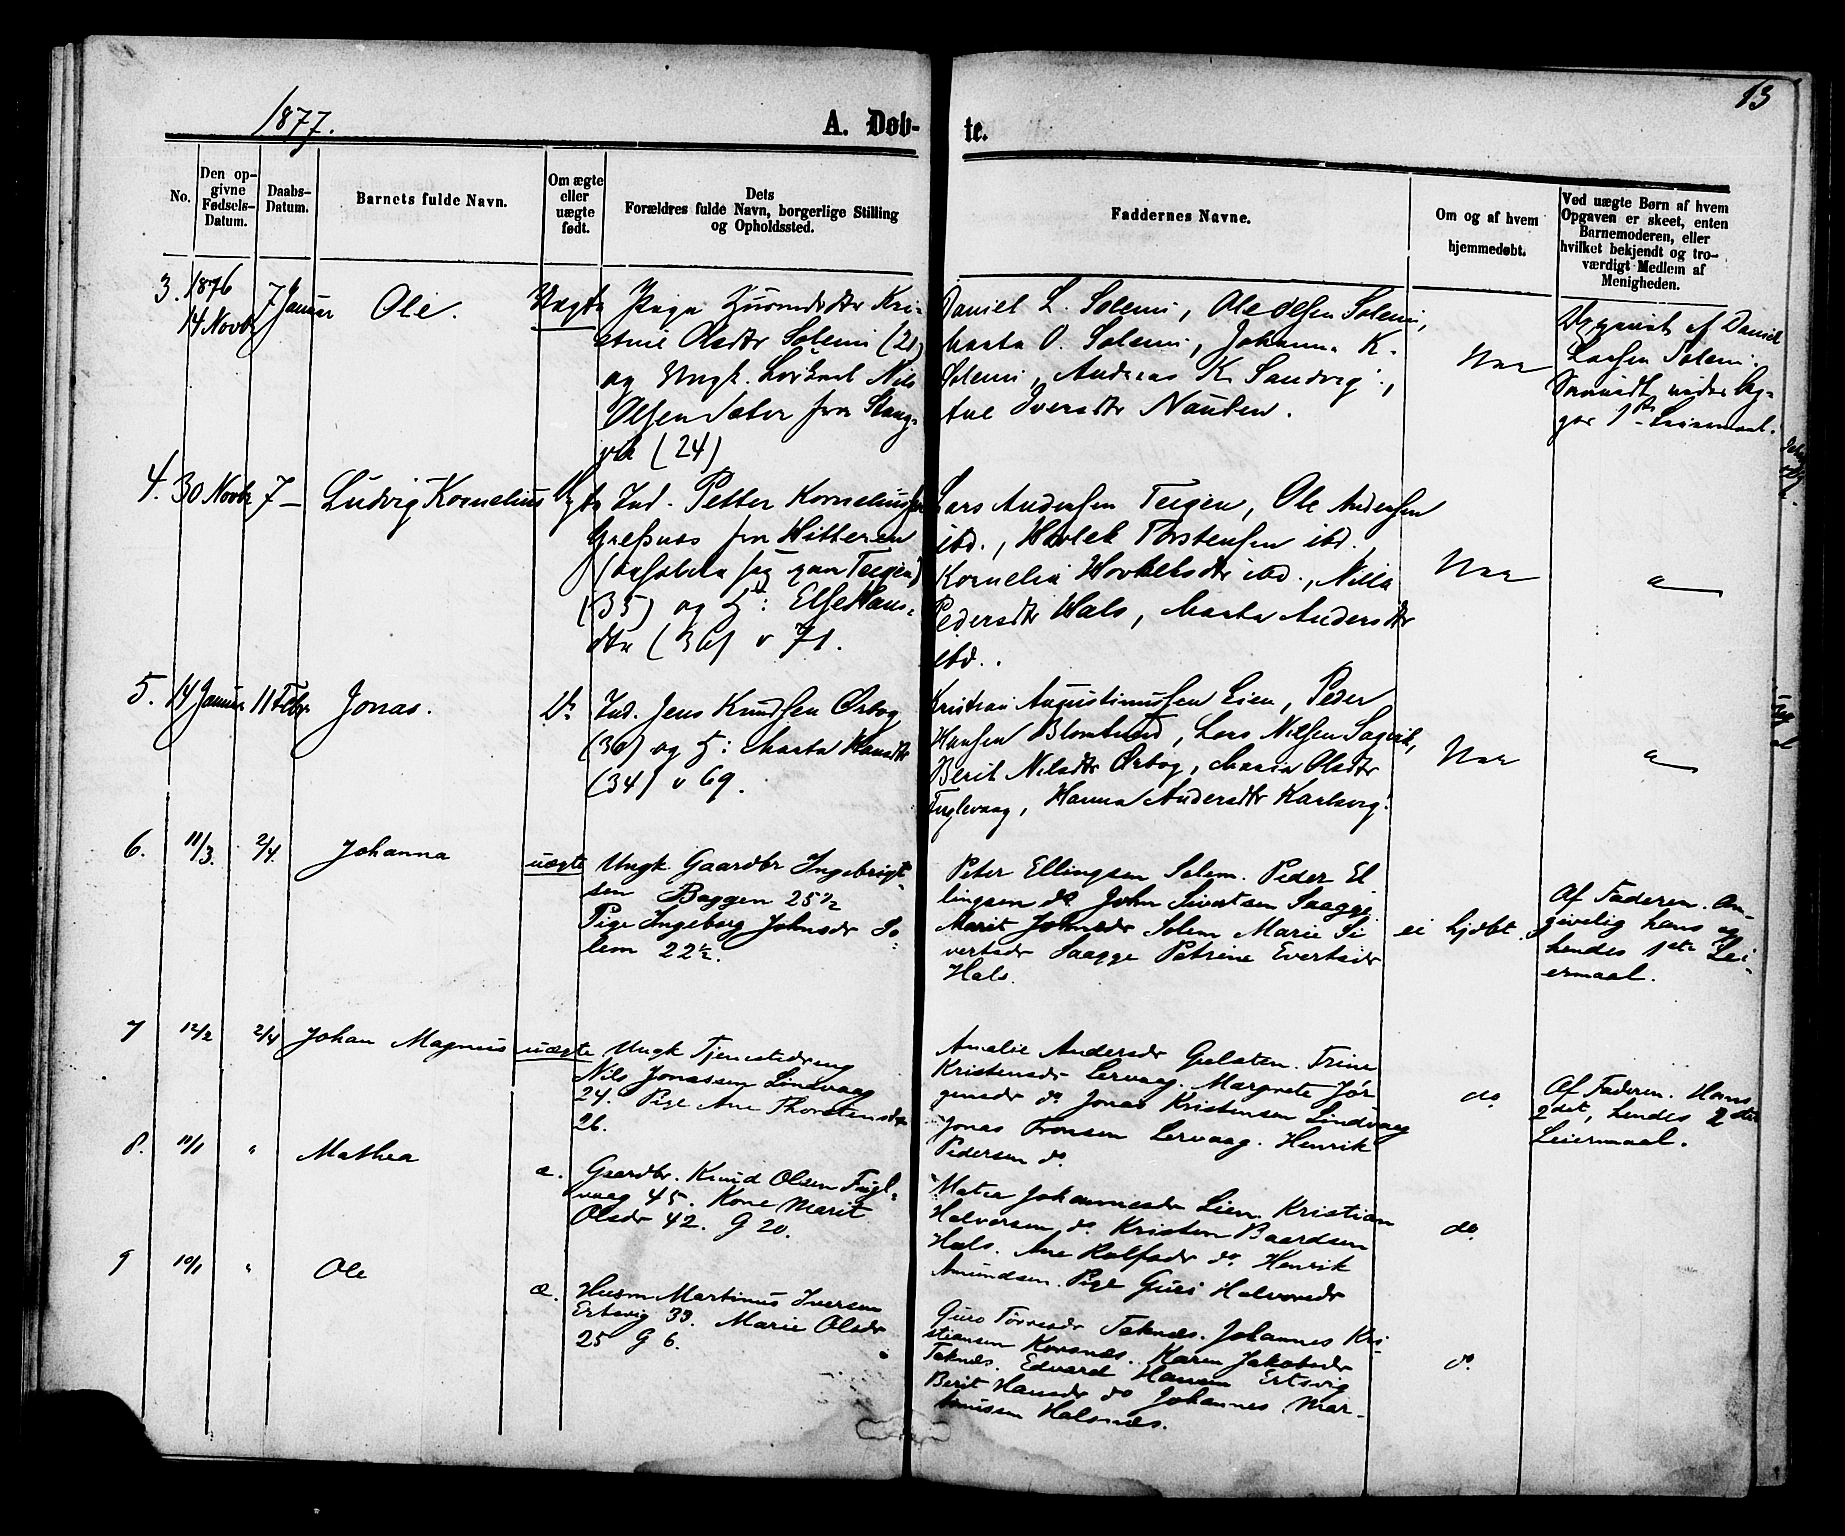 13
1877.
A. Døb-
te.
No.
Den op-
givne
Fødsels-
Datum.
Daabs-
Datum.
Barnets fulde Navn.
Om ægte
eller
uægte
født.
Dets
Forældres fulde Navn, borgerlige Stilling
og Opholdssted.
Faddernes Navne.
Om og af hvem
hjemmedøbt.
Ved uægte Børn af hvem
Opgaven er skeet, enten
Barnemoderen, eller
hvilket bekjendt og tro-
værdigt Medlem af
Menigheden.
3. 1876
14 Novbr
7 Januar
Ole.
Uægte
Pige Kri-
stine Olsdtr Solemi (21)
og Ungk. Nils
Olsen Sæter fra Stang-
vik (24)
Daniel L. Solemi, Ole Olsen Solemi,
Marta O. Solemi, Johanna K.
Solemi, Andreas K. Sandvig,
Ane Iversdtr Nausten.
Nei
Opgivet af Daniel
Larsen Solemi.
1ste Leiermaal.
4.
30 Novbr
7 —
Ludvig Kornelius
Ægte
Ind. Petter Korneliussen
fra Hitteren
Teigen)
(35) og H: Else Hans-
dtr (36) v 71.
Lars Andersen Teigen, Ole Andersen
ibd., Torstensen ibd.
Kornelia ibd., Nilla
Pedersdtr Hals, Marta Andersdtr
ibd.
Nei
"
5.
14 Januar
11 Febr.
Jonas.
Do
Ind. Jens Knudsen Ørbog
(36) og H: Marta Hansdtr
(34) v 69.
Kristian Augustinussen Lien, Peder
Hansen, Lars Nilsen Sagvik,
Berit Nilsdtr Ørbog, Maria Olsdtr
Fuglevaag, Hanna Andersdtr Karlsvig.
Nei
"
6.
11/3.
2/4.
Johanna
uægte
Ungk. Gaardbr Ingebrigt
sen Baggen 25 1/2
Pige Ingeborg Johnsdr So-
lem 22 1/2.
Peter Ellingsen Solem. Peder El
lingsen do John Sivertsen Saagge
Marit Johnsdr Solem Marie Si
vertsdr Saagge Petrine Evertsdr
Hals.
ei hjdbt.
Af Faderen. An-
givelig hans og
hendes 1ste Lei-
ermaal.
7
12/2
2/4
Johan Magnus
uægte
Ungk Tjenestedreng
Nils Jonassen Lindvaag
24. Pige Ane Thorstensdr
26.
Amalie Andersdr Gulsten. Trine
Kristensdr Lervaag. Margrete Jør
gensdr do Jonas Kristensen Lindvaag
Jonas Fronsen Lervaag. Henrik
Pedersen do.
do.
Af Faderen. Hans
2det, hendes 2det
Leiermaal.
8.
11/1
"
Mathea
æ.
Gaardbr. Knud Olsen Fugl-
vaag 45. Kone Marit
Olsdr 42. G 20.
Johannesdr Lien. Kristian
Halvorsen do. Kristen Baardsen
Hals. Ane Rolfsdr do. Henrik
Amundsen. Pige Guri Halvorsdr
do.
9
10/1
"
Ole
æ.
Husm Martinus Iversen
Ertsvig 33. Marie Olsdr
25 G 6.
Guro Tørresdr Taknes. Johannes Kri-
stiansen Korsnæs. Karen Jakobsdr
Taknes. Edvard Hansen Ertsvig
Berit Hansdr do Johannes Mar-
tinussen Halsnæs.
do.